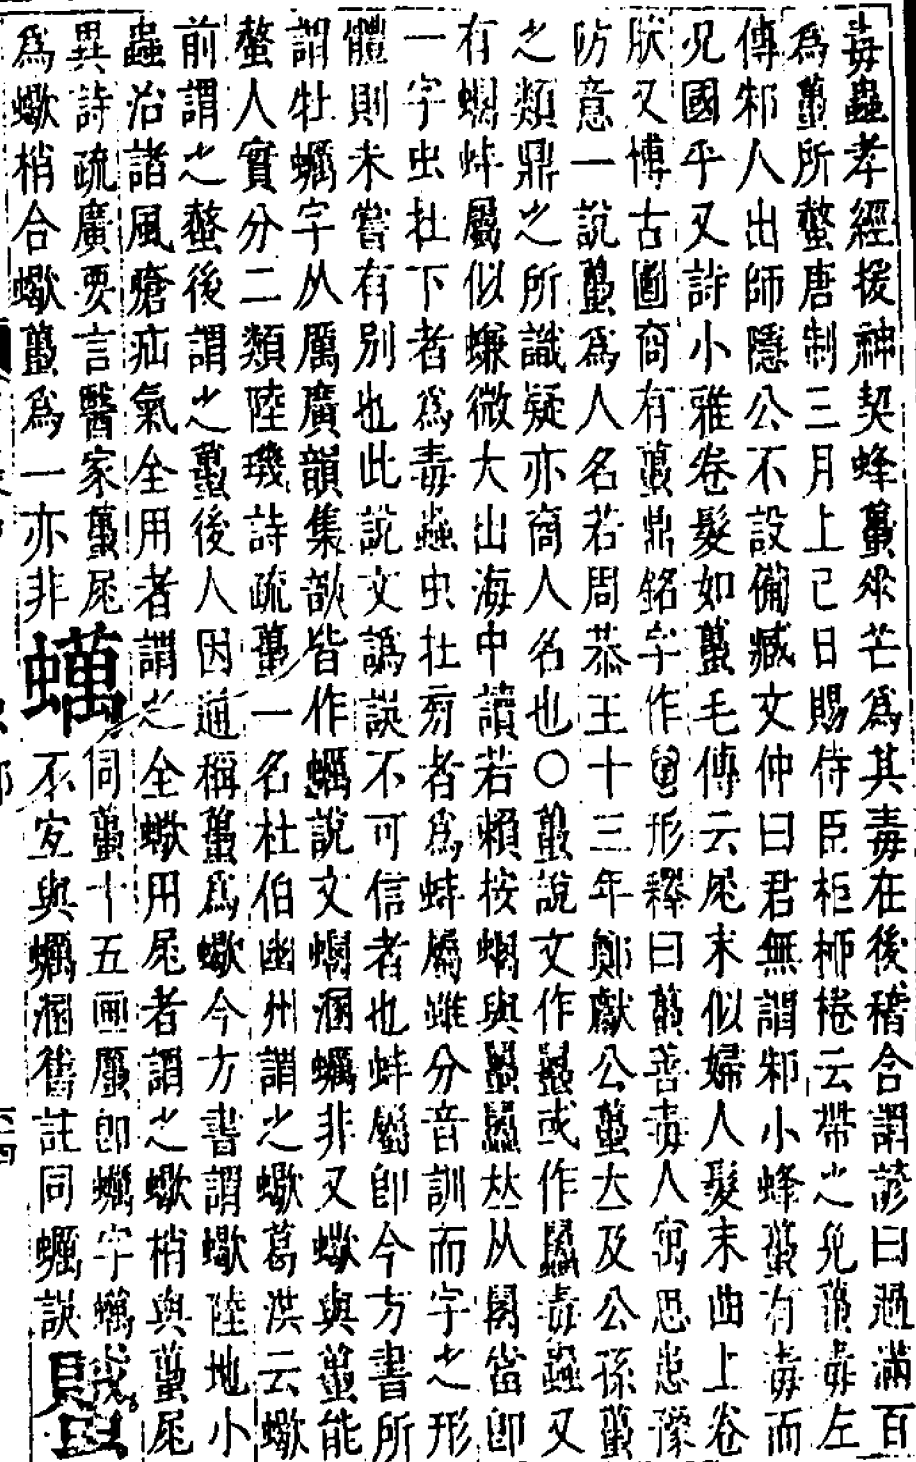 毒蟲孝經援神契蜂蠆垂芒為其毒在後稽含謂諺曰過滿百
為蠆所螫唐制三月上巳日賜侍臣柜栁棬云帶之免蠆毒左
傳邾人出師隱公不設備臧文仲曰君無謂邾小蜂蠆有毒而
况國乎又詩小雅卷髮如蠆毛傳云尾末似婦人髮末曲上卷
肰又博古圖商有蠆鼎銘字作形釋曰蠆善毒人寓思患豫
防意一說蠆為人名若周恭王十三年鄭獻公蠆及公孫蠆
之類鼎之所識疑亦商人名也○蠆說文作或作毒蟲又
有蠣蚌屬似螊微大出海中讀若賴按蠣與𠀤从萬當卽
一字虫在下者為毒蟲虫在旁者為蚌屬雖分音訓而字之形
體則未嘗有別也此說文譌誤不可信者也蚌屬卽今方書所
謂牡蠣字从厲廣韻集韻皆作蠣說文蠇溷蠣非又蠍與蠆能
螫人實分二類陸璣詩疏蠆一名杜伯幽州謂之蠍葛洪云蠍
前謂之螫後謂之蠆後人因通稱蠆為蠍今方書謂蠍陸地小
蟲治諸風瘡疝氣全用者謂之全蠍用尾者謂之蠍梢與蠆尾
異詩疏廣要言醫家蠆尾
為蠍梢合蠍蠆為一亦非
蠇
同蠆十五画卽蠣字蠇
不宐與蠣溷舊註同蠣誤